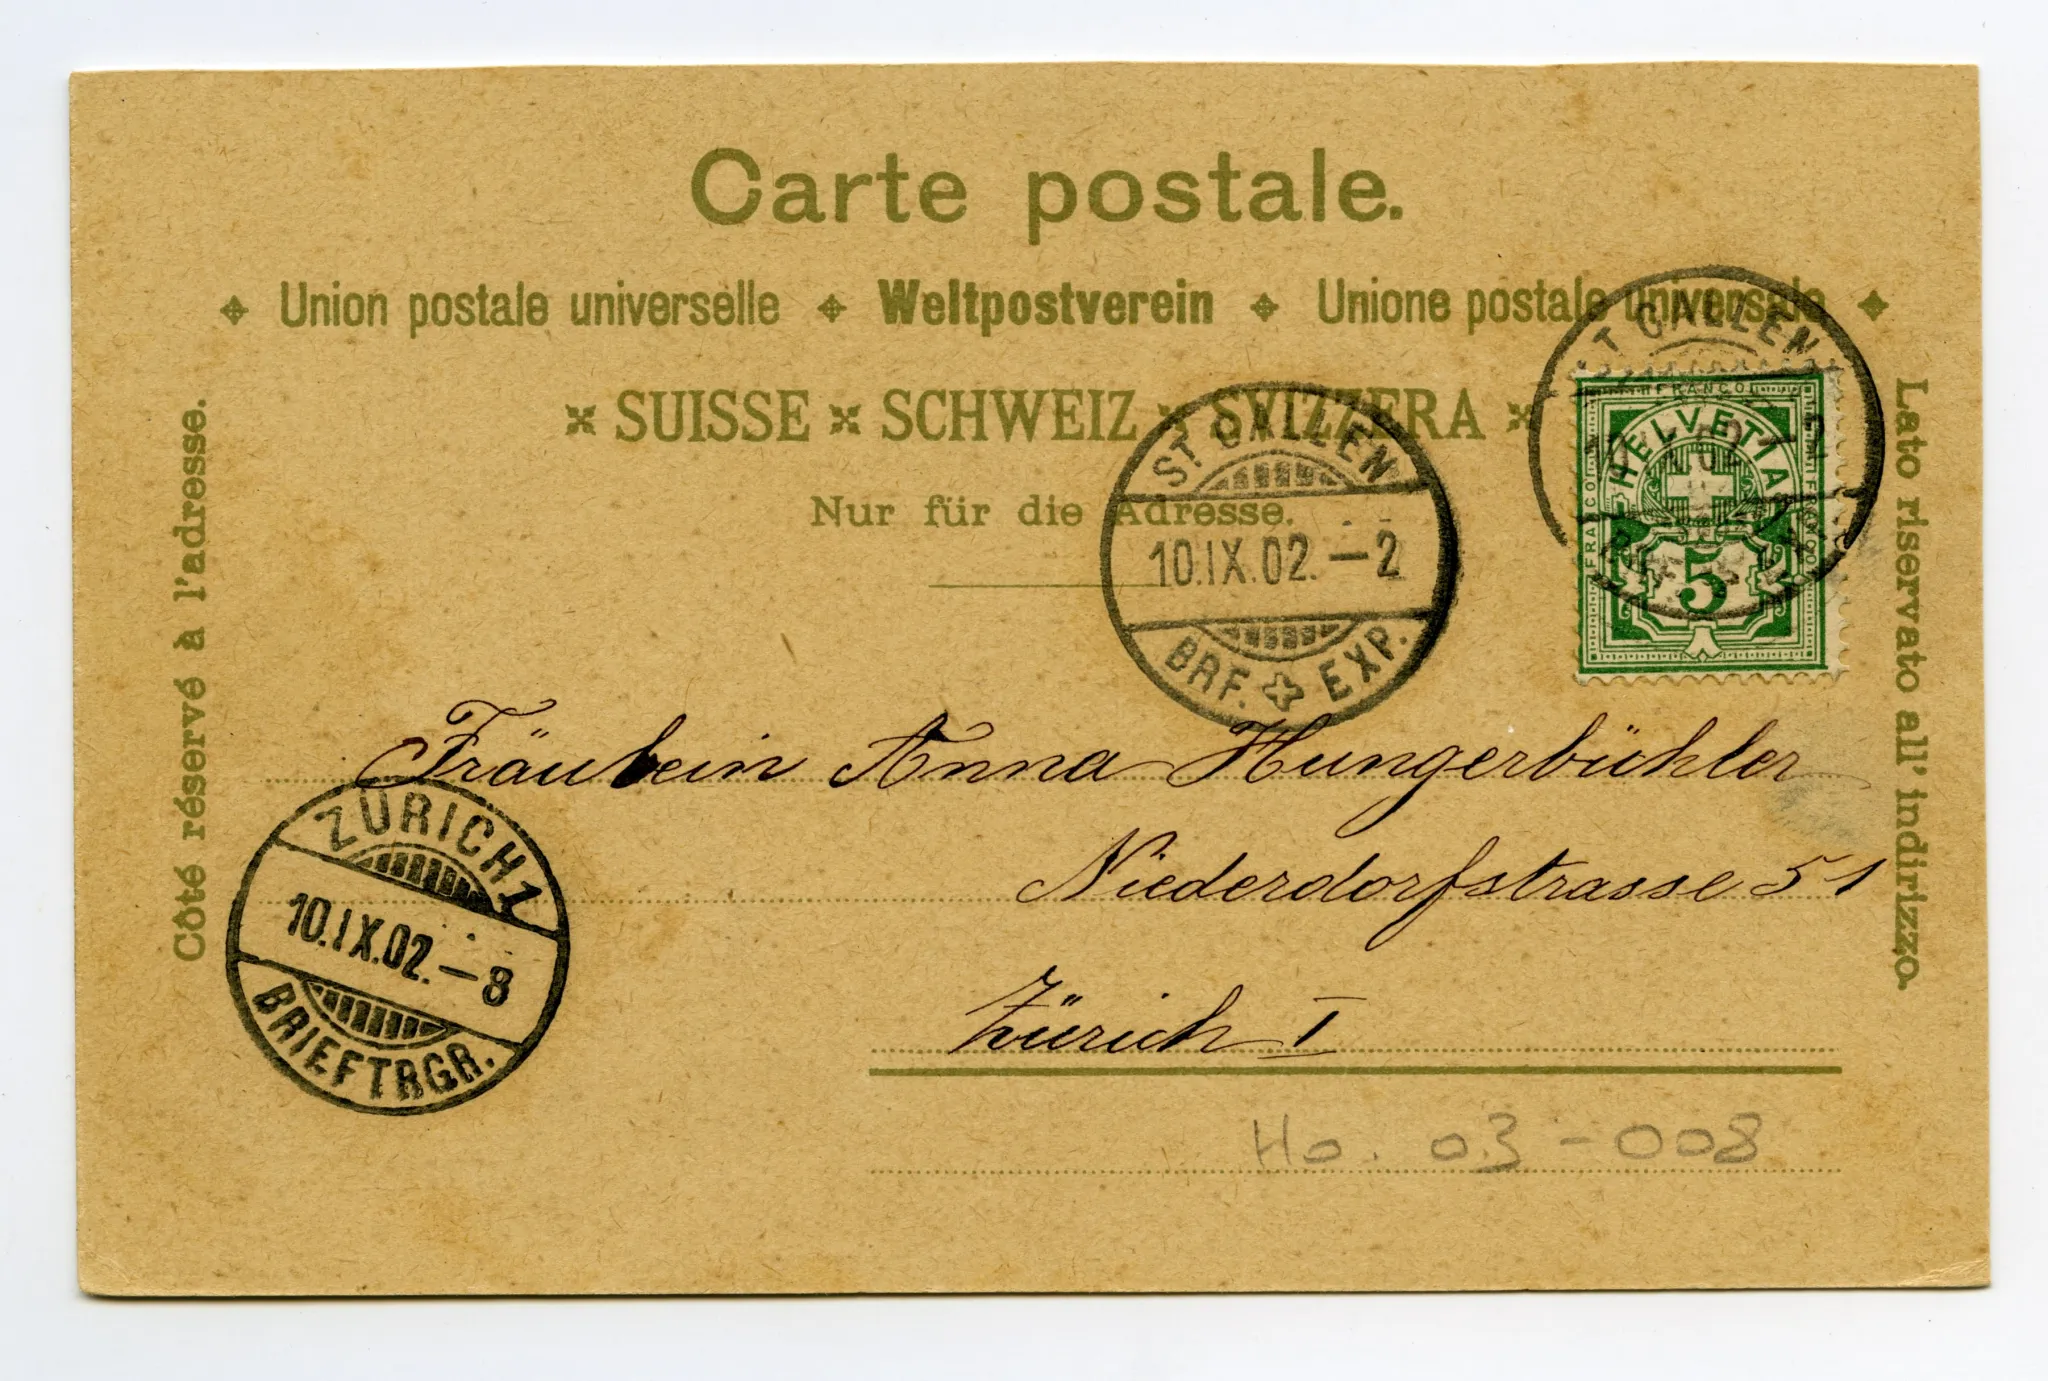 Carte postale.
Union postale universelle Weltpostverein Unione postale universale
SUISSE SCHWEIZ SVIZZERA
Nur für die Adresse.
Côté réservé à l'adresse.
Lato riservato all' indirizzo.
ST. GALLEN
10.IX.02.-2
BRF. EXP.
ST. GALLEN
FRANCO
FRANCO
FRANCO
HELVETIA
5
Fräulein Anna Hungerbühler
Niederdorfstrasse 51
Zürich I
ZÜRICH 1
10.IX.02.-8
BRIEFTRGR.
Ho. 03-008